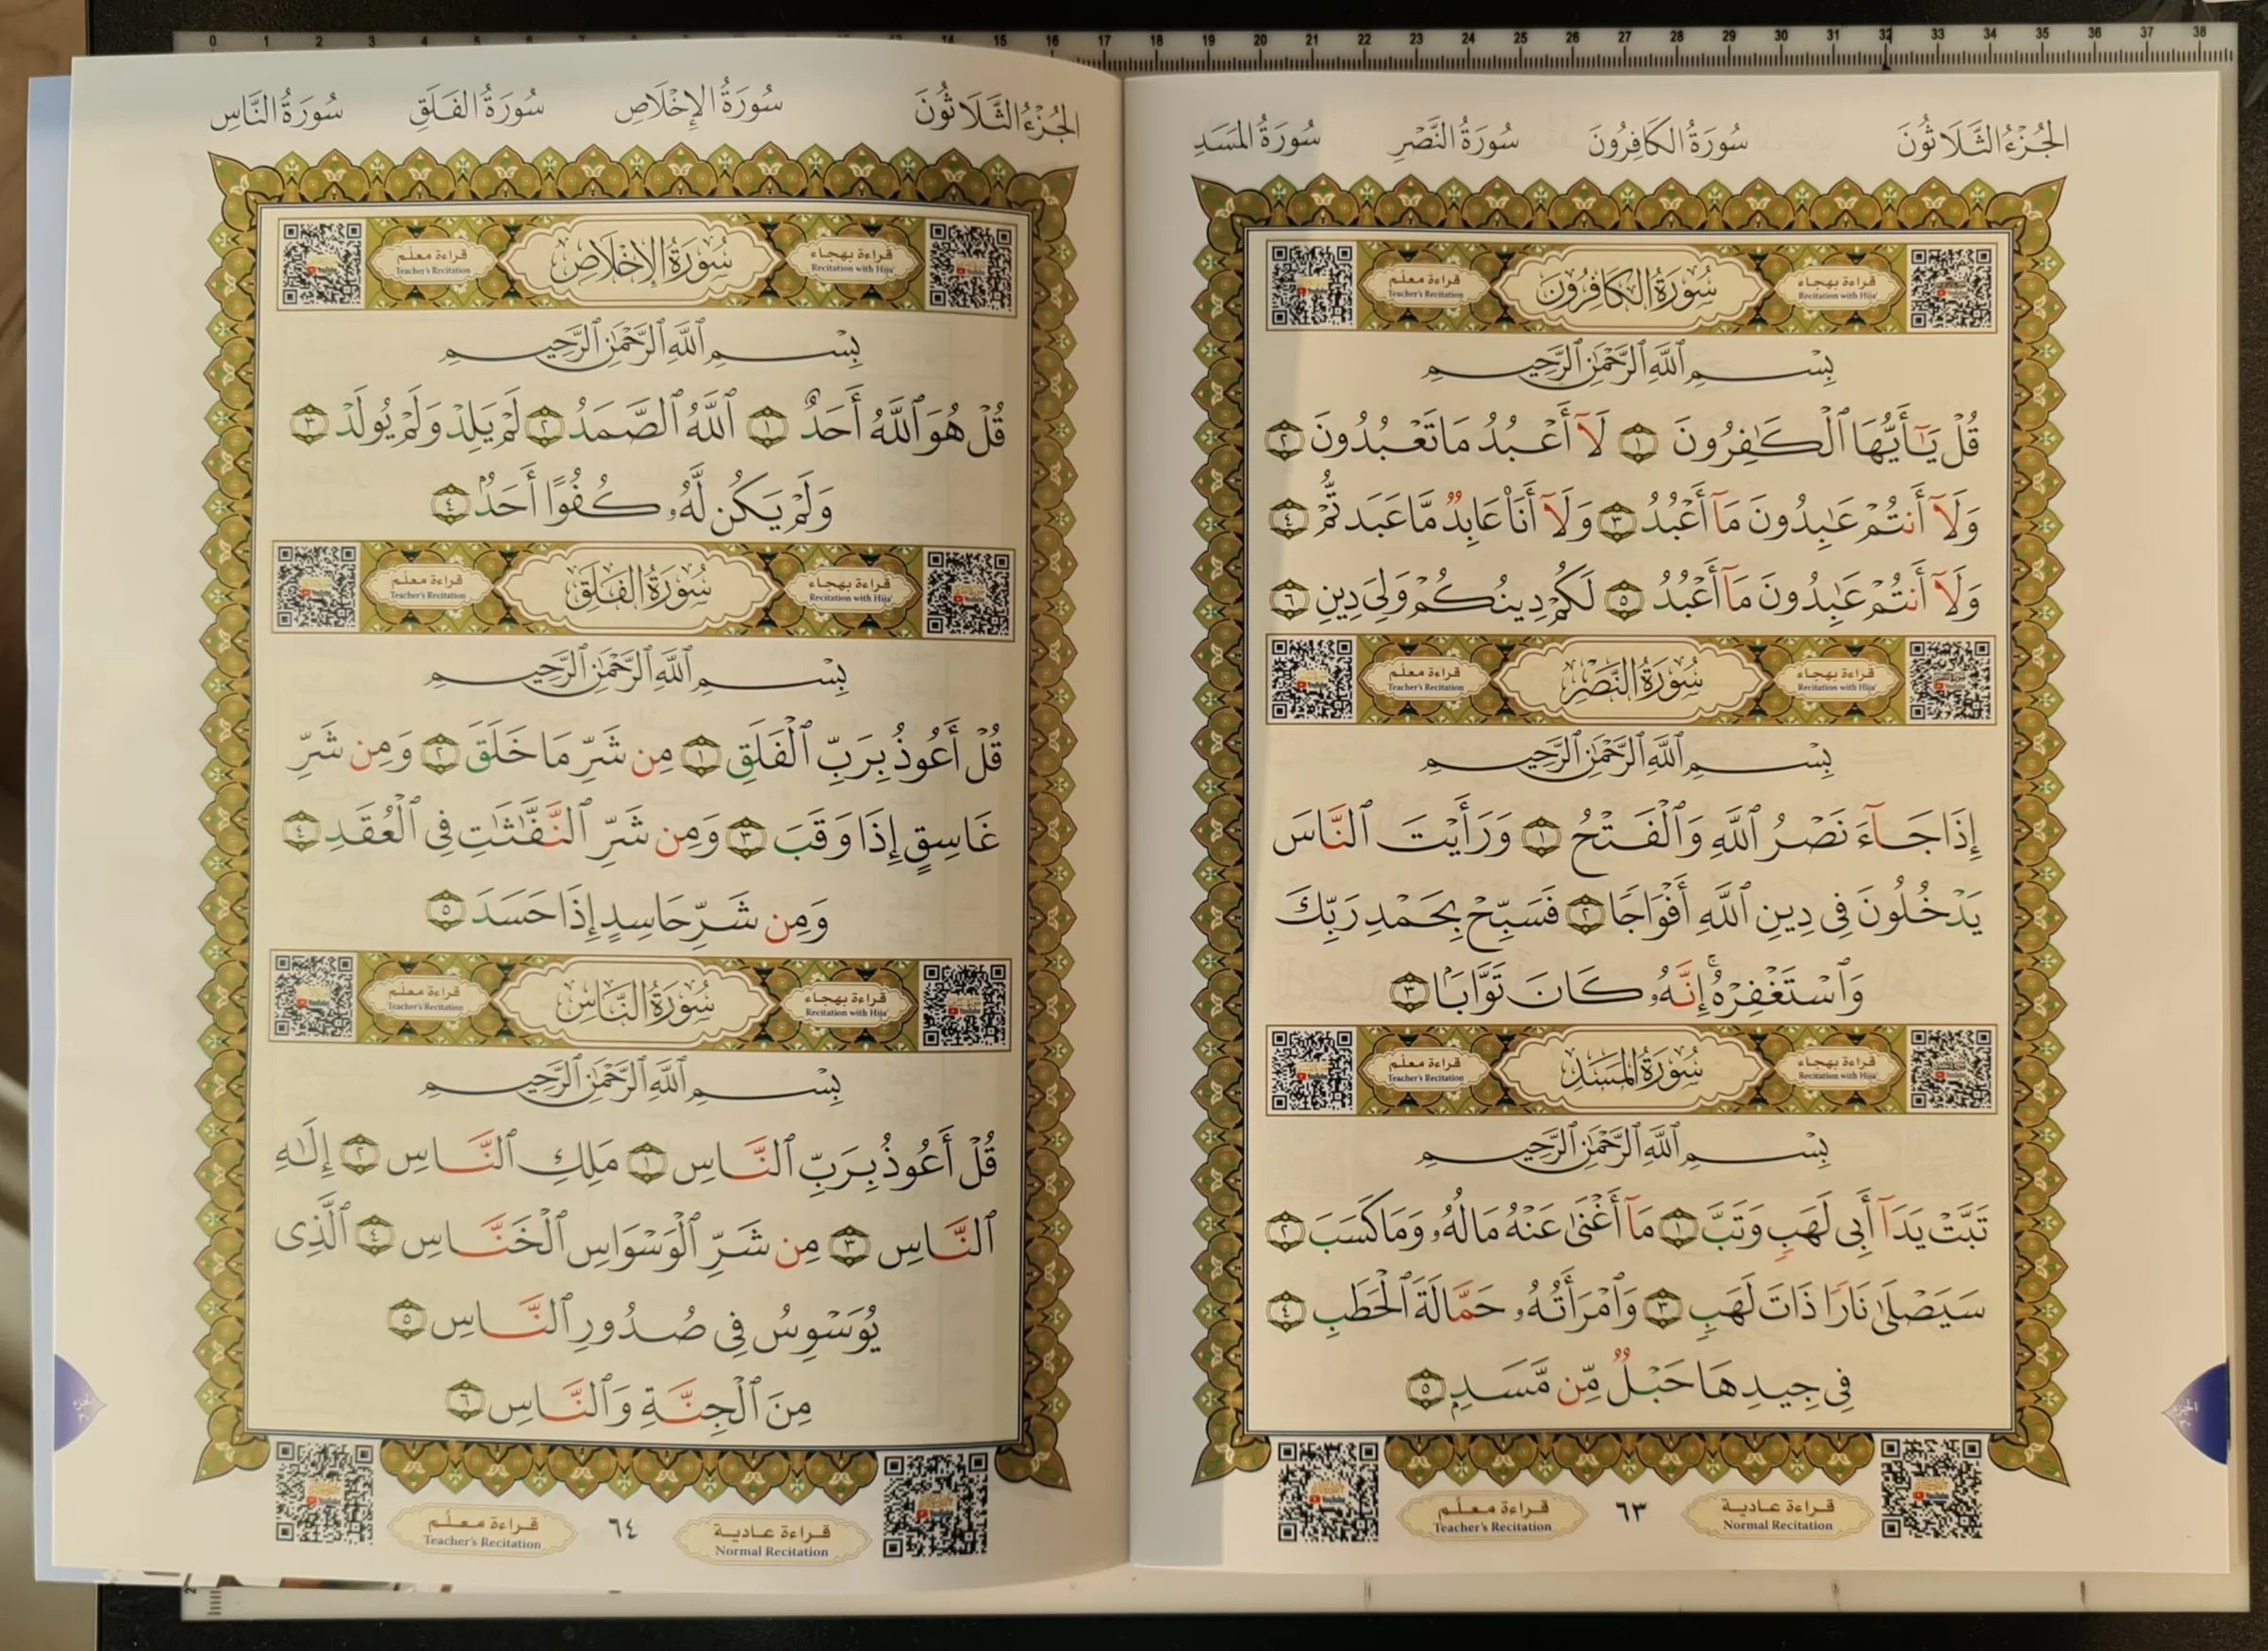 الجُزْءُ الثَّلَاثُونَ سُورَةُ الكَافِرُونَ سُورَةُ النَّصْرِ سُورَةُ المَسَدِ
قراءة بهجاء
Recitation with Hija'
سُورَةُ الكَافِرُونَ
قراءة معلّم
Teacher's Recitation
بِسْمِ ٱللَّهِ ٱلرَّحْمَٰنِ ٱلرَّحِيمِ
قُلْ يَٰٓأَيُّهَا ٱلْكَٰفِرُونَ ١ لَآ أَعْبُدُ مَا تَعْبُدُونَ ٢
وَلَآ أَنتُمْ عَٰبِدُونَ مَآ أَعْبُدُ ٣ وَلَآ أَنَا۠ عَابِدٌ مَّا عَبَدتُّمْ ٤
وَلَآ أَنتُمْ عَٰبِدُونَ مَآ أَعْبُدُ ٥ لَكُمْ دِينُكُمْ وَلِيَ دِينِ ٦
قراءة بهجاء
Recitation with Hija'
سُورَةُ النَّصْرِ
قراءة معلّم
Teacher's Recitation
بِسْمِ ٱللَّهِ ٱلرَّحْمَٰنِ ٱلرَّحِيمِ
إِذَا جَآءَ نَصْرُ ٱللَّهِ وَٱلْفَتْحُ ١ وَرَأَيْتَ ٱلنَّاسَ
يَدْخُلُونَ فِى دِينِ ٱللَّهِ أَفْوَاجًا ٢ فَسَبِّحْ بِحَمْدِ رَبِّكَ
وَٱسْتَغْفِرْهُ ۚ إِنَّهُۥ كَانَ تَوَّابًۢا ٣
قراءة بهجاء
Recitation with Hija'
سُورَةُ المَسَدِ
قراءة معلّم
Teacher's Recitation
بِسْمِ ٱللَّهِ ٱلرَّحْمَٰنِ ٱلرَّحِيمِ
تَبَّتْ يَدَآ أَبِى لَهَبٍ وَتَبَّ ١ مَآ أَغْنَىٰ عَنْهُ مَالُهُۥ وَمَا كَسَبَ ٢
سَيَصْلَىٰ نَارًا ذَاتَ لَهَبٍ ٣ وَٱمْرَأَتُهُۥ حَمَّالَةَ ٱلْحَطَبِ ٤
فِى جِيدِهَا حَبْلٌ مِّن مَّسَدٍۭ ٥
قراءة عادية
Normal Recitation
٦٣
قراءة معلّم
Teacher's Recitation
الجُزْءُ الثَّلَاثُونَ سُورَةُ الإِخْلَاصِ سُورَةُ الفَلَقِ سُورَةُ النَّاسِ
قراءة بهجاء
Recitation with Hija'
سُورَةُ الإِخْلَاصِ
قراءة معلّم
Teacher's Recitation
بِسْمِ ٱللَّهِ ٱلرَّحْمَٰنِ ٱلرَّحِيمِ
قُلْ هُوَ ٱللَّهُ أَحَدٌ ١ ٱللَّهُ ٱلصَّمَدُ ٢ لَمْ يَلِدْ وَلَمْ يُولَدْ ٣
وَلَمْ يَكُن لَّهُۥ كُفُوًا أَحَدٌۢ ٤
قراءة بهجاء
Recitation with Hija'
سُورَةُ الفَلَقِ
قراءة معلّم
Teacher's Recitation
بِسْمِ ٱللَّهِ ٱلرَّحْمَٰنِ ٱلرَّحِيمِ
قُلْ أَعُوذُ بِرَبِّ ٱلْفَلَقِ ١ مِن شَرِّ مَا خَلَقَ ٢ وَمِن شَرِّ
غَاسِقٍ إِذَا وَقَبَ ٣ وَمِن شَرِّ ٱلنَّفَّٰثَٰتِ فِى ٱلْعُقَدِ ٤
وَمِن شَرِّ حَاسِدٍ إِذَا حَسَدَ ٥
قراءة بهجاء
Recitation with Hija'
سُورَةُ النَّاسِ
قراءة معلّم
Teacher's Recitation
بِسْمِ ٱللَّهِ ٱلرَّحْمَٰنِ ٱلرَّحِيمِ
قُلْ أَعُوذُ بِرَبِّ ٱلنَّاسِ ١ مَلِكِ ٱلنَّاسِ ٢ إِلَٰهِ
ٱلنَّاسِ ٣ مِن شَرِّ ٱلْوَسْوَاسِ ٱلْخَنَّاسِ ٤ ٱلَّذِى
يُوَسْوِسُ فِى صُدُورِ ٱلنَّاسِ ٥
مِنَ ٱلْجِنَّةِ وَٱلنَّاسِ ٦
قراءة عادية
Normal Recitation
٦٤
قراءة معلّم
Teacher's Recitation
0 1 2 3 4 5 14 15 16 17 18 19 20 21 22 23 24 25 26 27 28 29 30 31 32 33 34 35 36 37 38